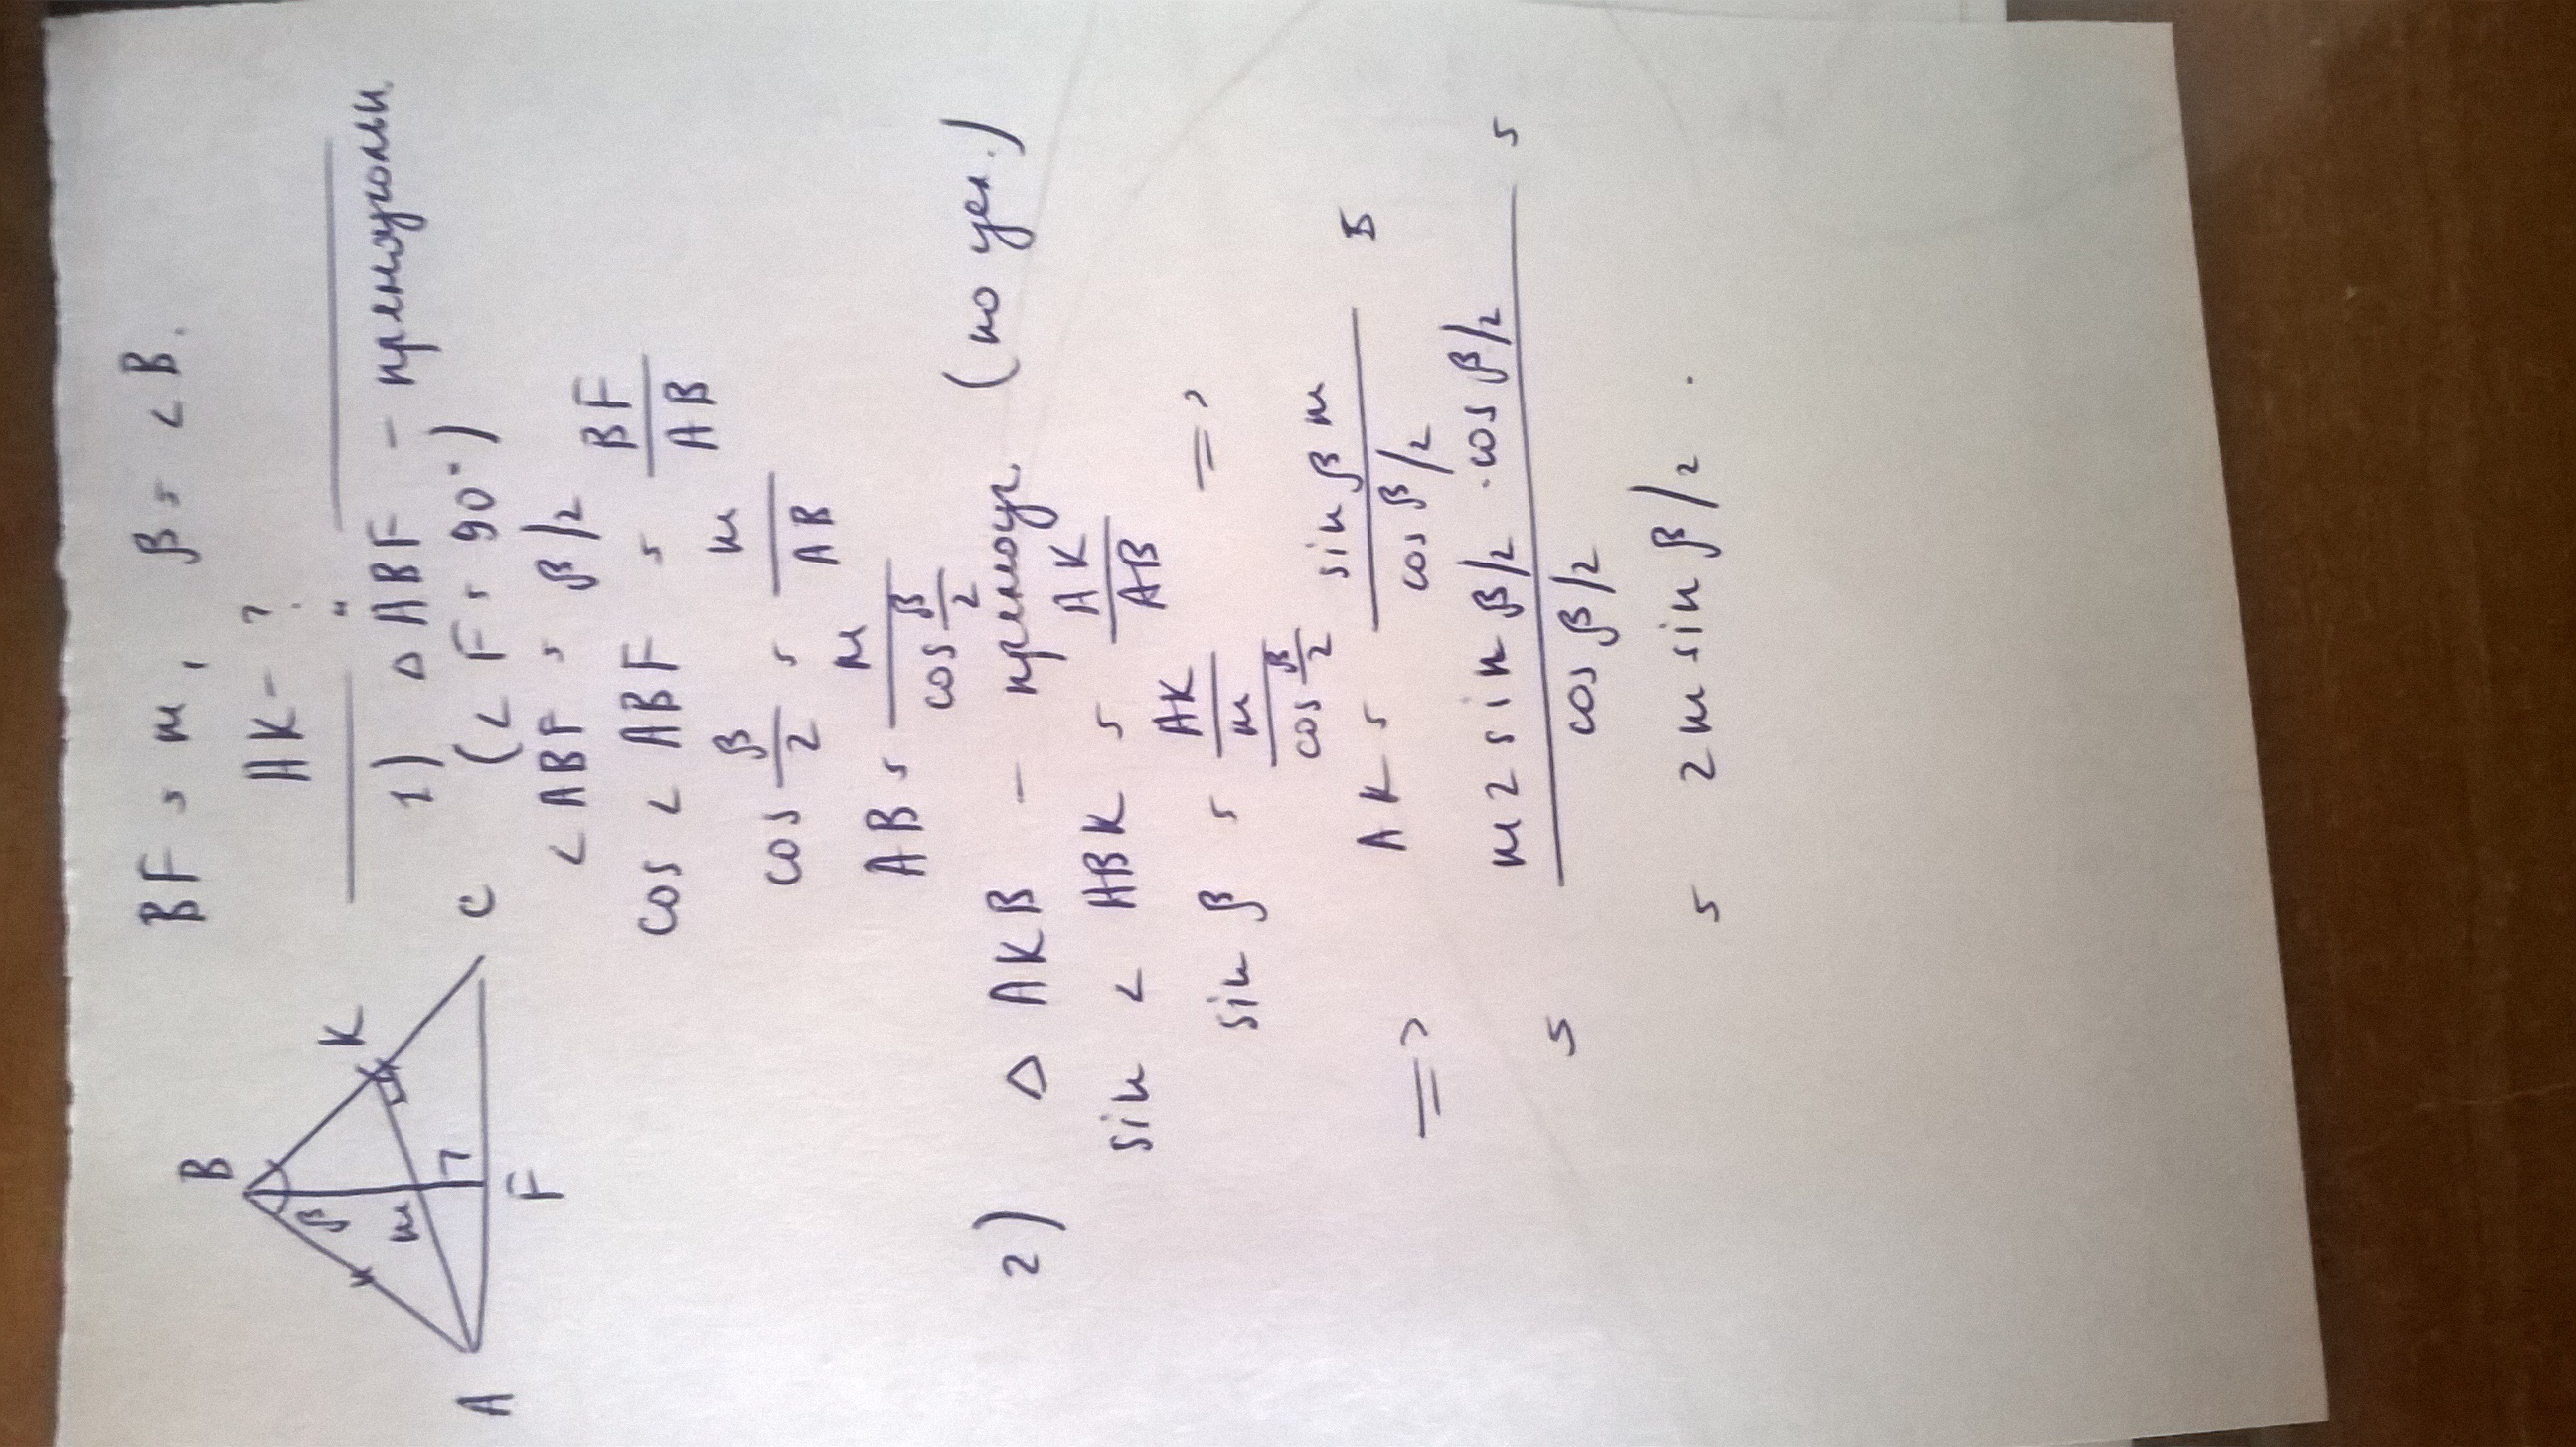 BF = m, β = ∠B.
AK - ?
1) △ ABF - прямоугольн.
(∠ F = 90°)
∠ ABF = β/2
cos ∠ ABF = BF/AB
cos β/2 = m/AB
AB = m/cos β/2
2) △ AKB - прямоуг. (по усл.)
sin ∠ ABK = AK/AB
sin β = AK/(m/cos β/2) =>
=> AK = sin β m/cos β/2 =
= m 2 sin β/2 · cos β/2/cos β/2 =
= 2 m sin β/2.
B
K
β
m
A
F
C